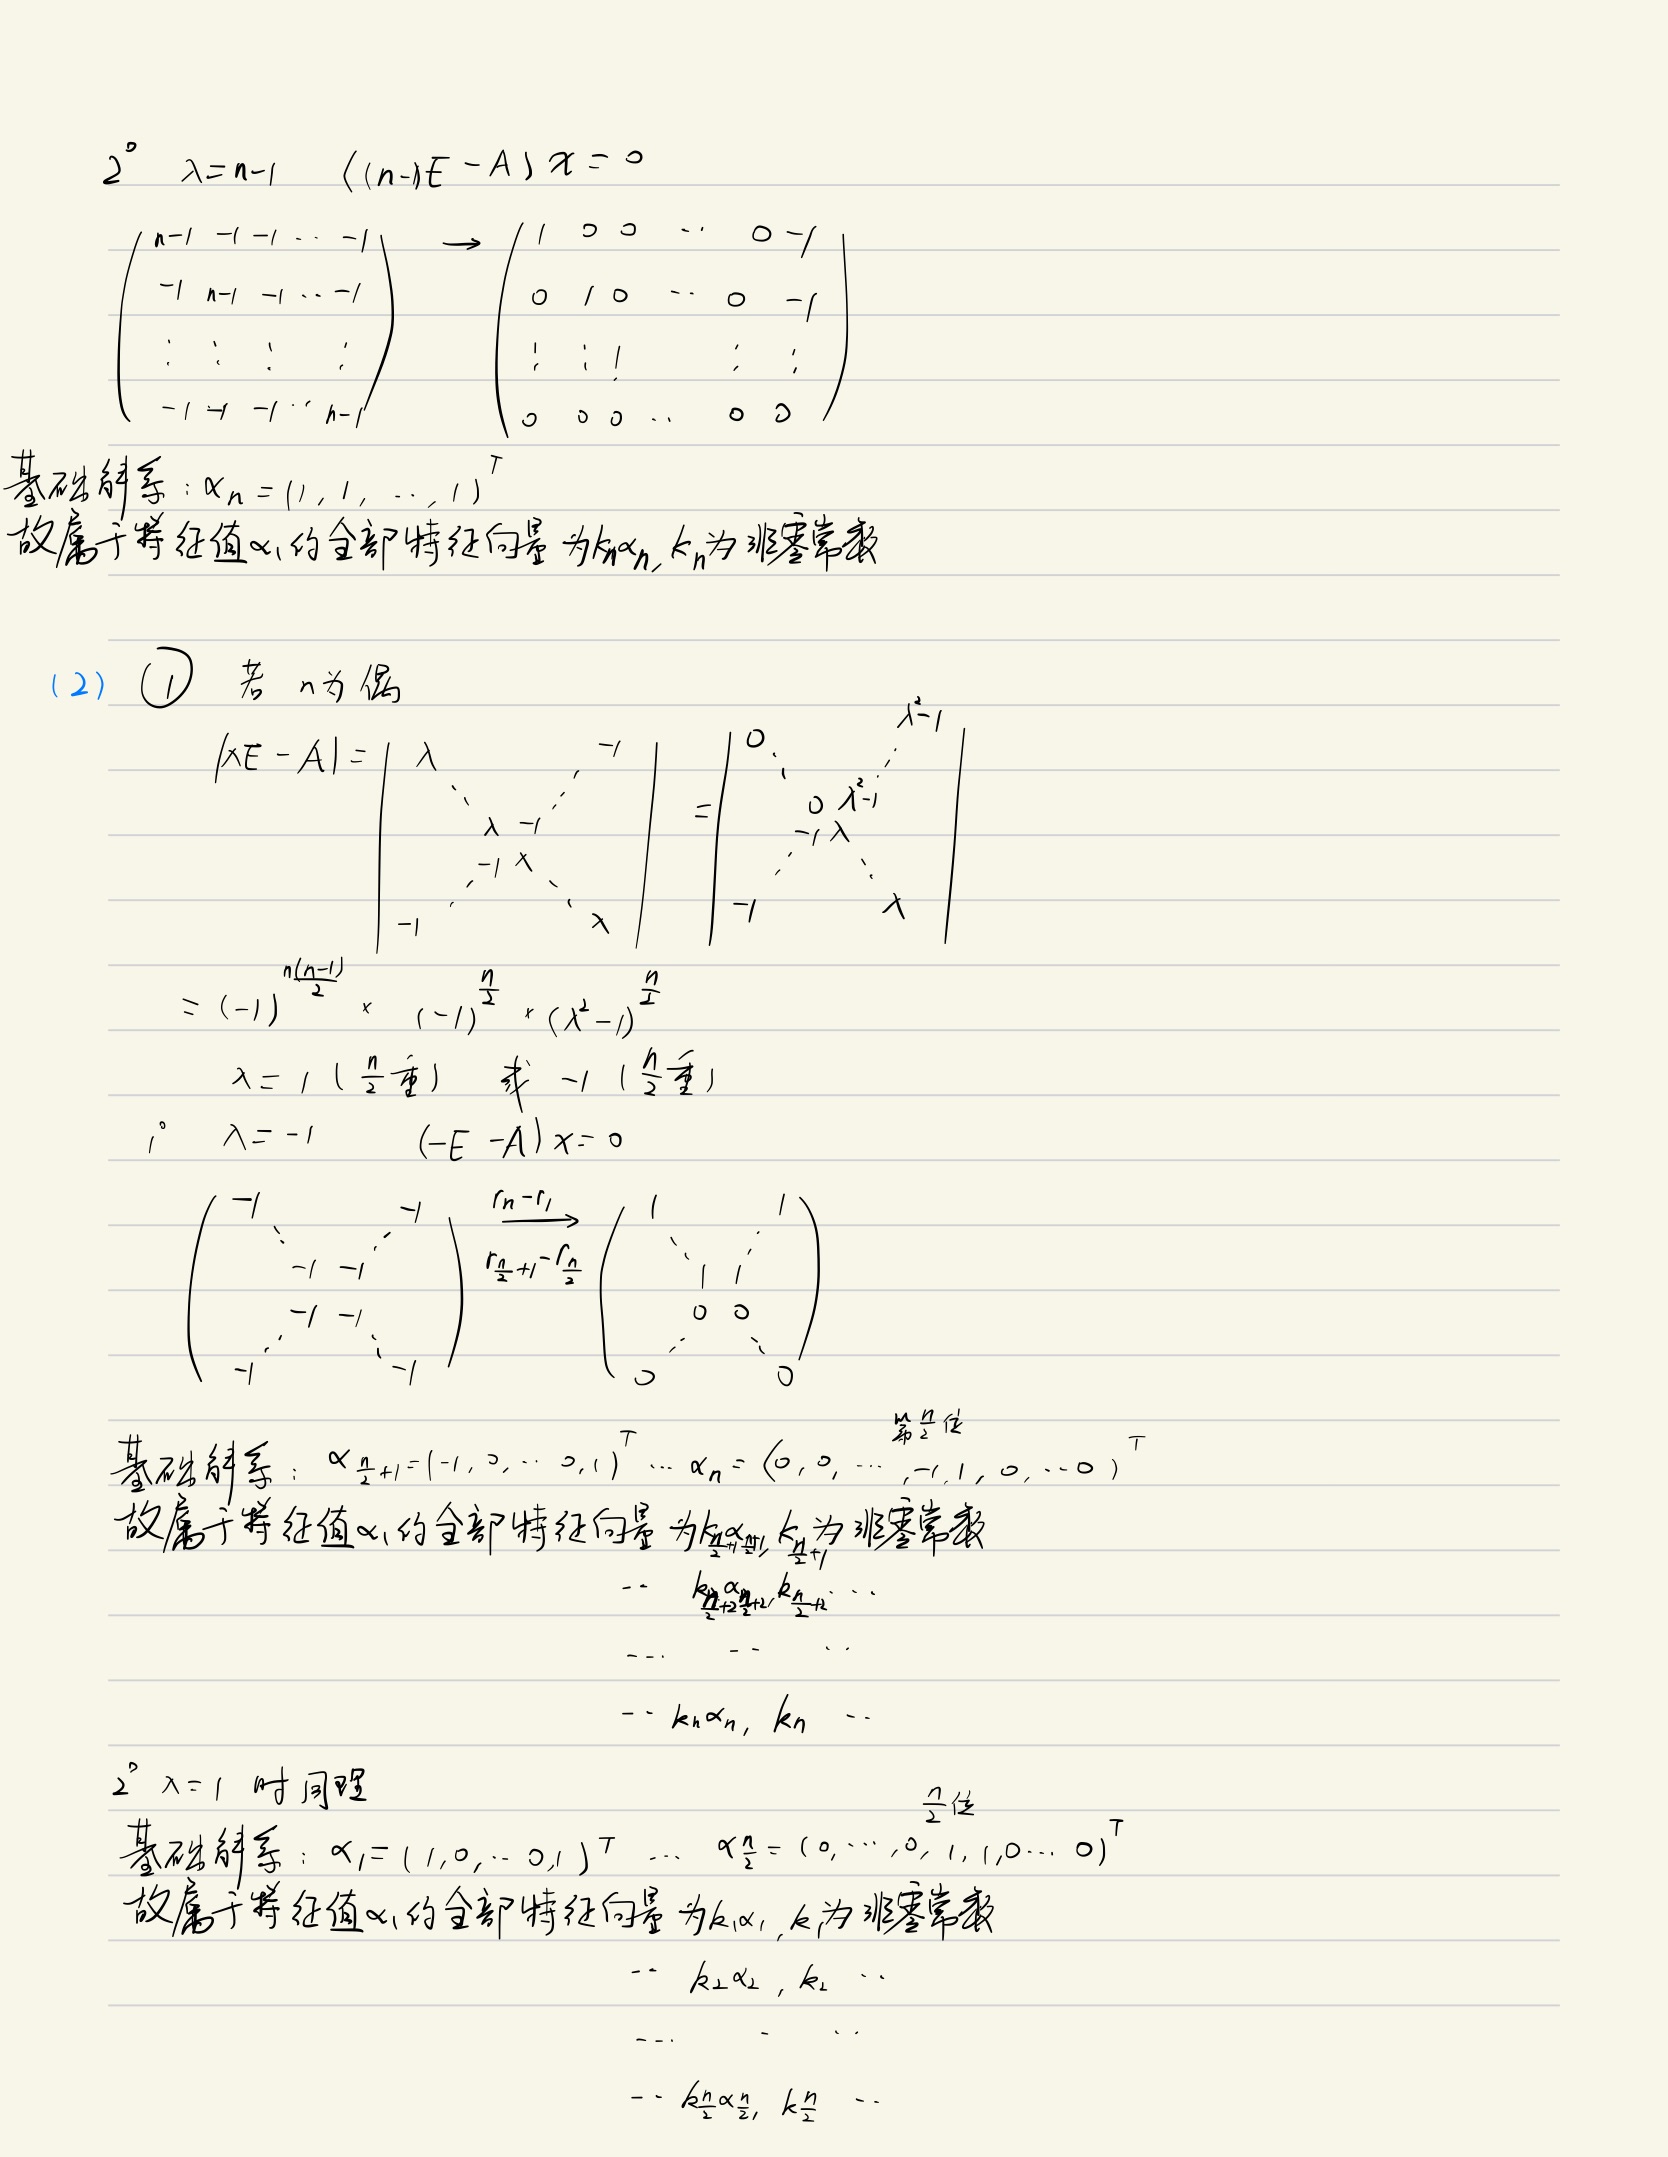 2° λ=n-1 ((n-1)E-A)x=0
n-1 -1 -1 ... -1 → 1 0 0 ... 0 -1
-1 n-1 -1 ... -1 0 1 0 ... 0 -1
⋮ ⋮ ⋮ ⋮ ⋮ ⋮ ⋮ ⋮ ⋮
-1 -1 -1 ... n-1 0 0 0 ... 0 0
基础解系: α_n=(1,1,...,1)^T
故属于特征值α₁的全部特征向量为k_nα_n,k_n为非零常数
(2) ① 若n为偶
|λE-A|= | λ -1 | = | 0 λ²-1 |
λ -1 0 λ²-1
-1 λ -1 λ
-1 λ -1 λ
=(-1)^{n(n-1)/2} × (-1)^{n/2} × (λ²-1)^{n/2}
λ=1(n/2重) 或 -1(n/2重)
1° λ=-1 (-E-A)x=0
-1 -1 r_n-r_1 → 1 1
-1 -1 r_{n/2+1}-r_{n/2} 1 1
-1 -1 0 0
-1 -1 0 0
第n/2位
基础解系: α_{n/2+1}=(-1,0,...0,1)^T ... α_n=(0,0,...,-1,1,0,...0)^T
故属于特征值α₁的全部特征向量为k_{n/2+1}α_{n/2+1},k_{n/2+1}为非零常数
... k_{n/2+2}α_{n/2+2},k_{n/2+2}...
... ... ...
... k_nα_n, k_n ...
2° λ=1 时同理
n/2位
基础解系: α₁=(1,0,...0,1)^T ... α_{n/2}=(0,...,0,1,1,0...0)^T
故属于特征值α₁的全部特征向量为k₁α₁,k₁为非零常数
... k₂α₂, k₂ ...
... ... ...
... k_{n/2}α_{n/2}, k_{n/2} ...